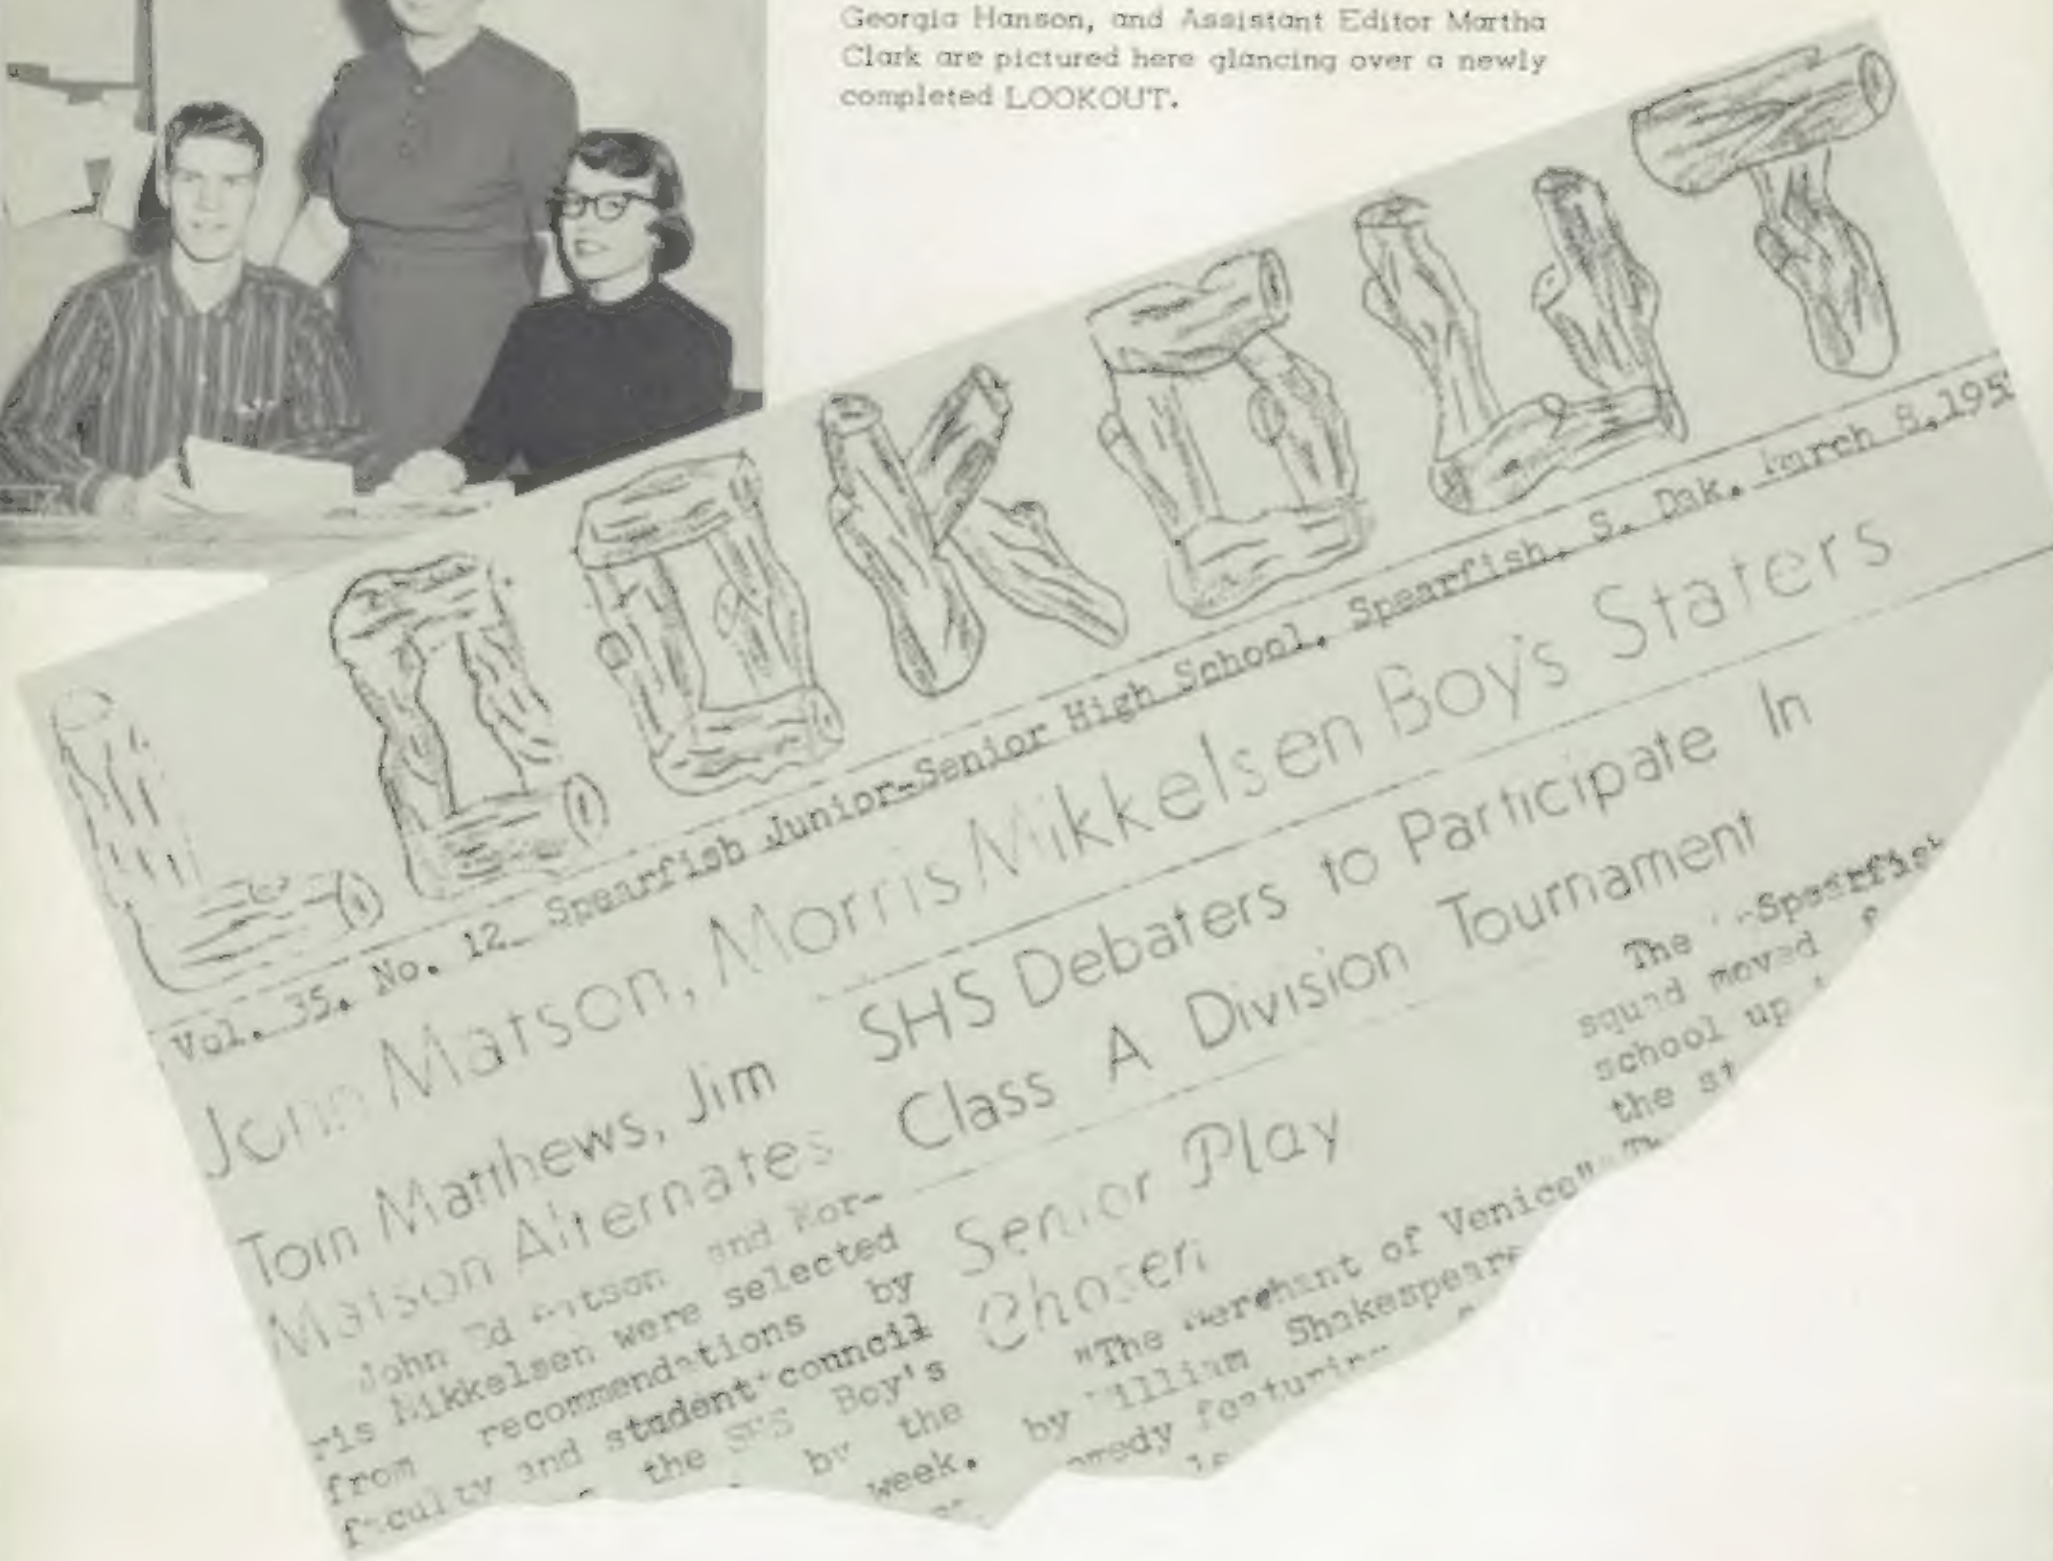 Georgia Hanson, and Assistant Editor Martha
Clark are pictured here glancing over a newly
completed LOOKOUT.
LOOKOUT
Vol. 35. No. 12. Spearfish Junior-Senior High School. Spearfish. S. Dak. March 8,195
John Matson, Morris Mikkelsen Boy's Staters
Tom Matthews, Jim
Matson Alternates
John Ed Matson and Mor-
ris Mikkelsen were selected
from recommendations by
faculty and student council
the SHS Boy's
by the
week.
SHS Debaters to Participate In
Class A Division Tournament
Senior Play
Chosen
"The Merchant of Venice"
by William Shakespeare
featuring
The Spearfish
squad moved
school up
the st